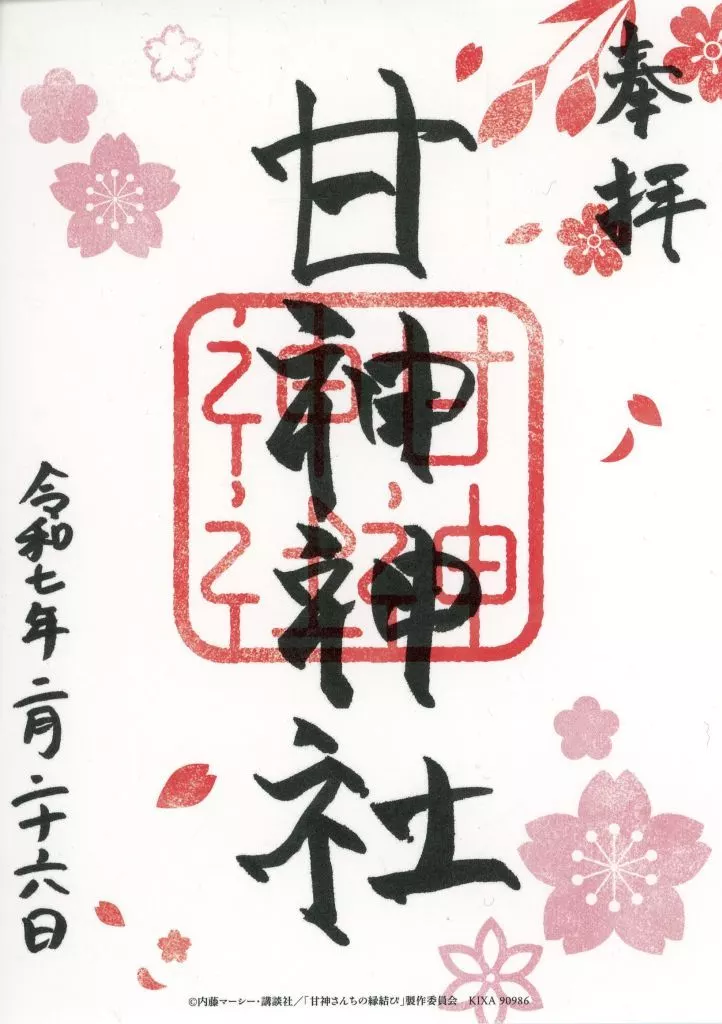 奉拝
甘神神社
甘神
神社
令和七年二月二十六日
©内藤マーシー・講談社/「甘神さんちの縁結び」製作委員会 KIXA 90986